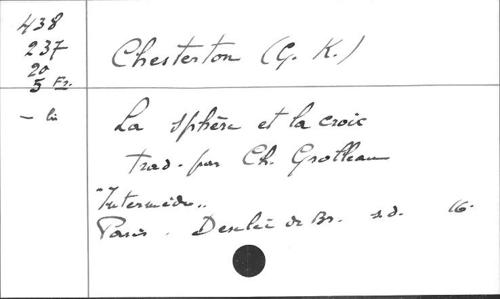 438
237
20
5 Fr.
Chesterton (G. K.)
— lu
La sphère et la croix
trad. par Ch. Grolleau
"Intermède"
Paris. Desclée de Br. s.d. 16.